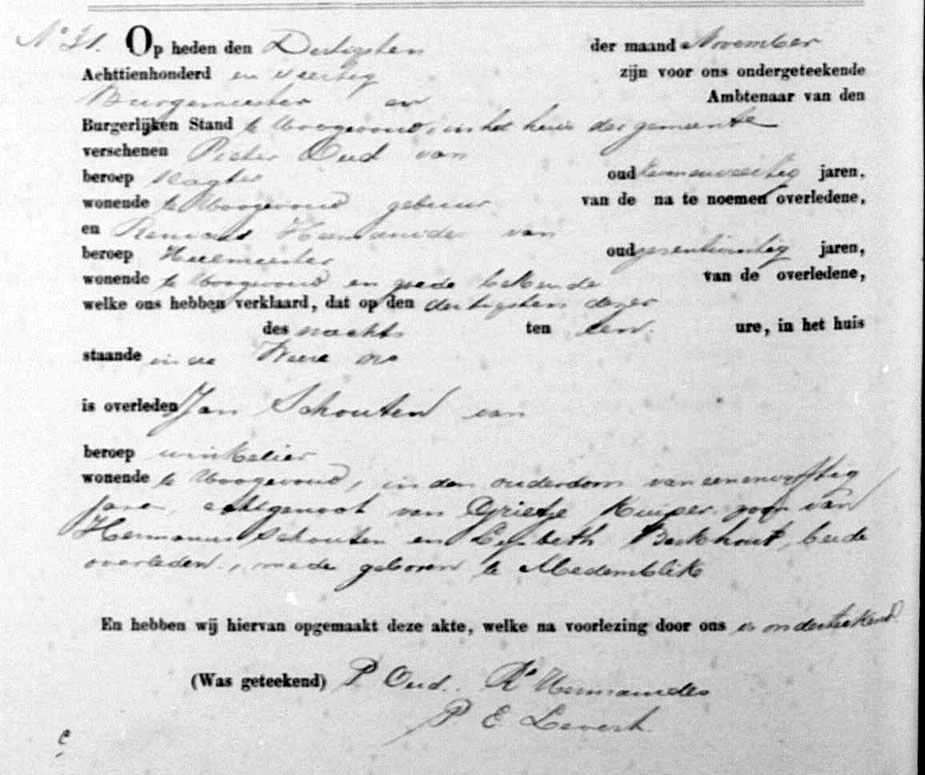 N° 31. Op heden den Dertigsten der maand November
Achttienhonderd en veertig zijn voor ons ondergeteekende
Burgemeester en Ambtenaar van den
Burgerlijken Stand te Hoogwoud, in het huis der gemeente
verschenen Pieter Oud van
beroep oud jaren,
wonende te Hoogwoud gebuur van de na te noemen overledene,
en Hermanides van
beroep Heelmeester oud jaren,
wonende te Hoogwoud en goede bekende van de overledene,
welke ons hebben verklaard, dat op den dertigsten dezer
des nachts ten een ure, in het huis
staande in de Weere
is overleden Jan Schouten van
beroep winkelier
wonende te Hoogwoud, in den ouderdom van eenenvyftig
jaren, echtgenoot van Grietje Kuiper, zoon van
Hermanus Schouten en Lysbeth Berkhout, beide
overleden, mede geboren te Medemblik
En hebben wij hiervan opgemaakt deze akte, welke na voorlezing door ons is onderteekend
(Was geteekend) P Oud. Rs Hermanides
P E Levert.